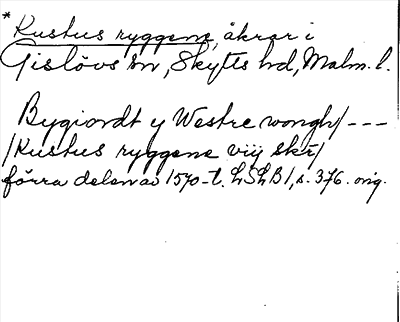 *Kustus ryggene, åkrar i
Gislövs sn, Skytts hd, Malm. l.
Bygiordt y Westre wongh/ ---
/Kustus ryggene viij skr/
förra delen av 1570-t. LSLB1, s. 376. orig.